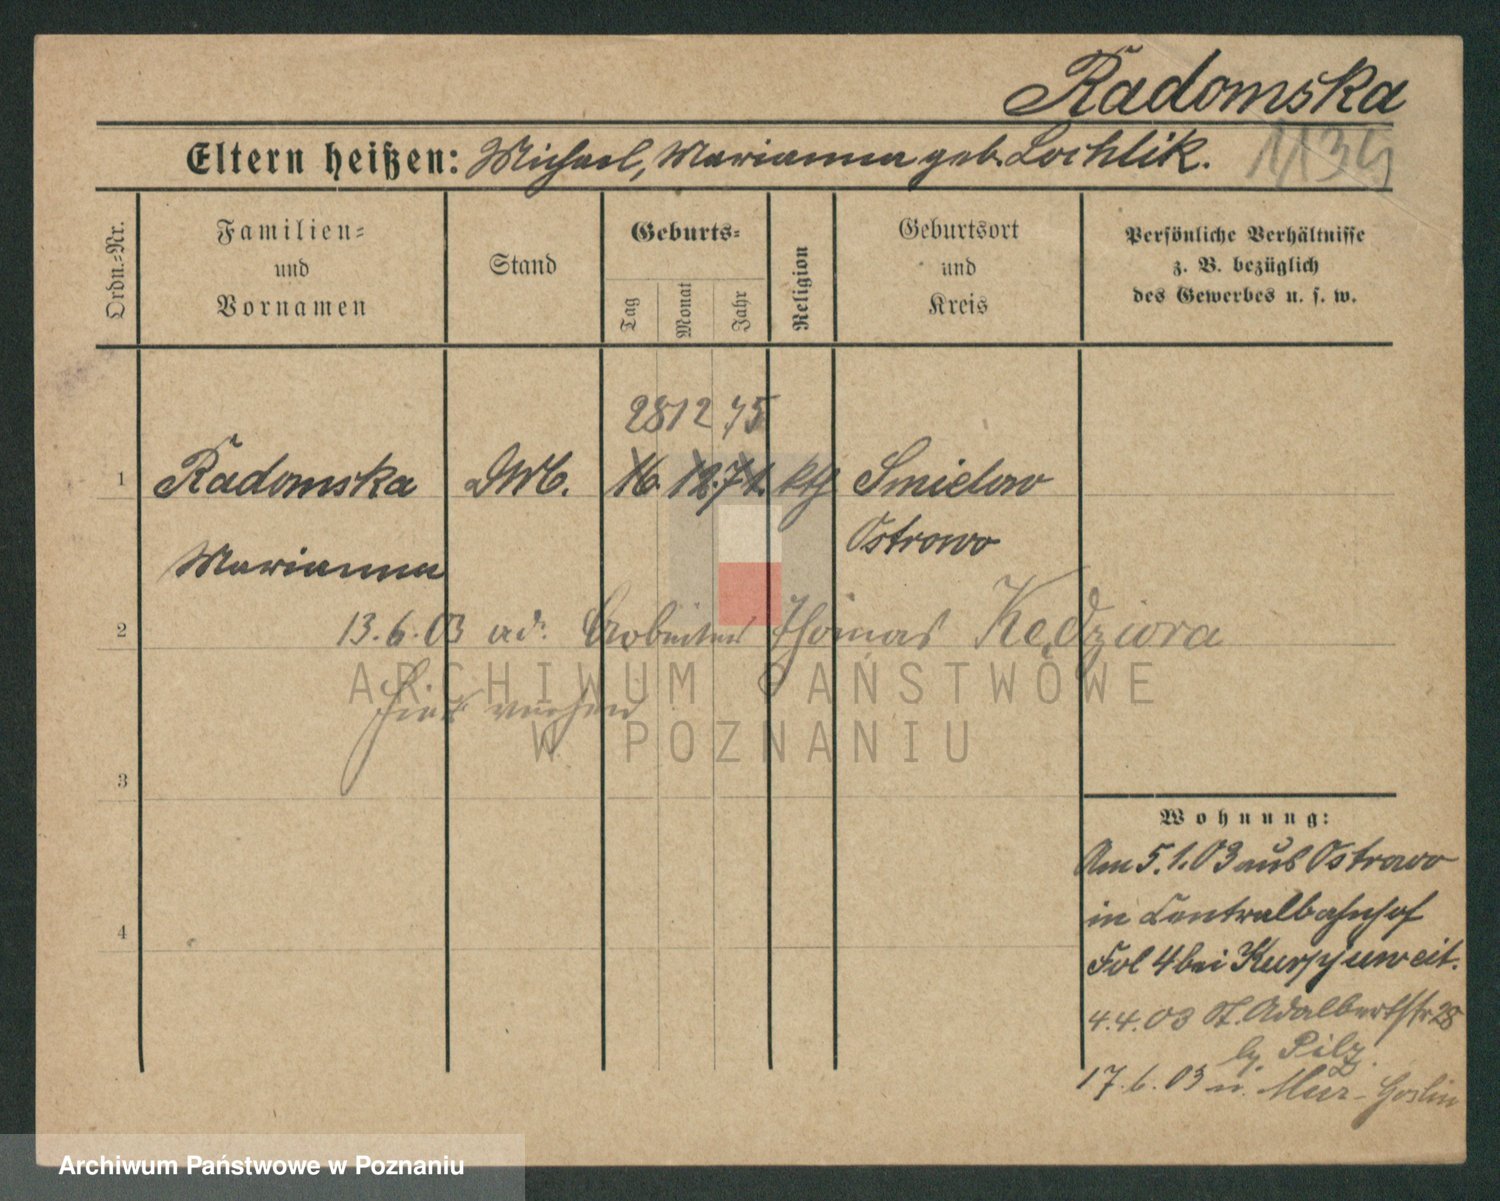 Radomska
1135
Eltern heißen: Michael, Marianna geb. Lochlik.
Ordn.-Nr.
Familien- und Vornamen
Stand
Geburts-
Tag
Monat
Jahr
Religion
Geburtsort und Kreis
Persönliche Verhältnisse z. B. bezüglich des Gewerbes u. s. w.
28 12 75
1 Radomska 16. 12. 71. kth Smielow
Ostrowo
Marianna
2 13.6.03 Arbeiter Thomas Kędziora
hier
ARCHIWUM PAŃSTWOWE
W POZNANIU
3
Wohnung:
Am 5.1.03 aus Ostrowo
in Centralbahnhof
4
Fol 4 bei
4.4.03 St. Adalbertstr 28
b/ Pilz.
17.6.03 n. Mur-Goslin
Archiwum Państwowe w Poznaniu